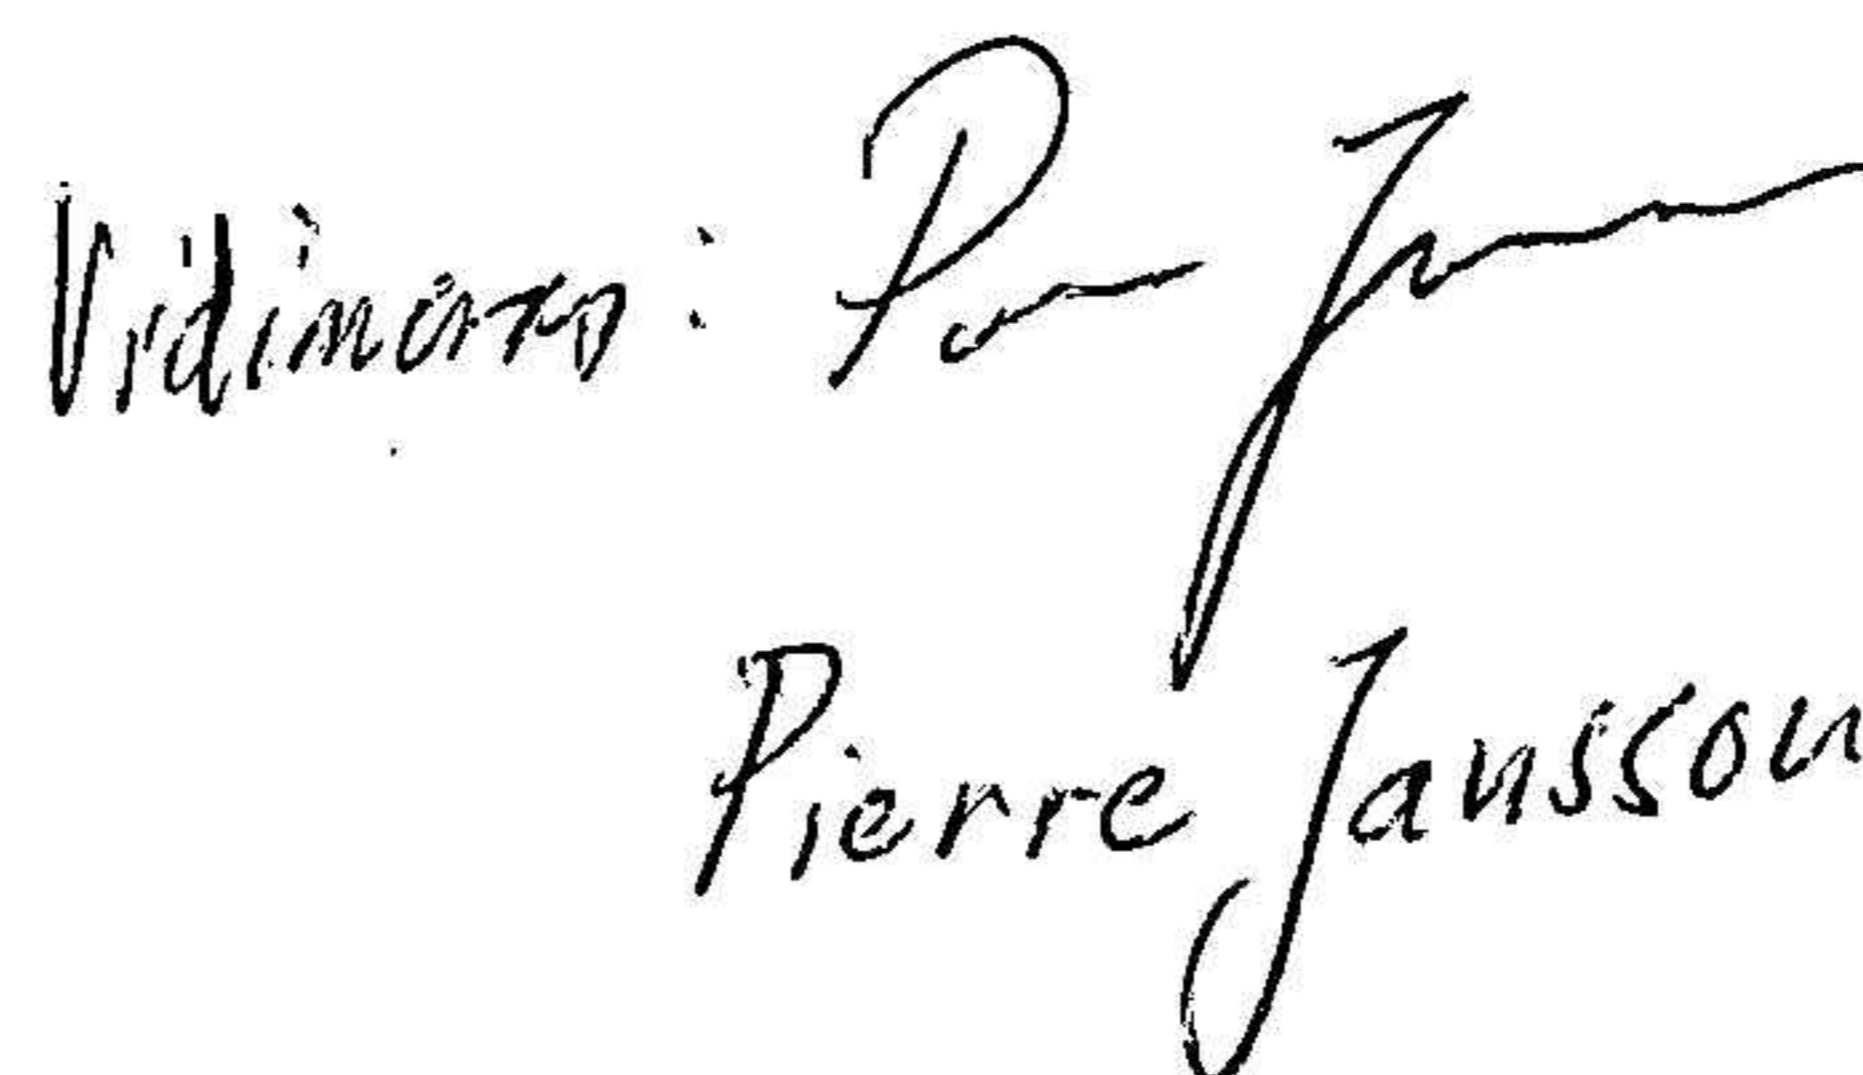 Vidimeras:
Pierre Jansson